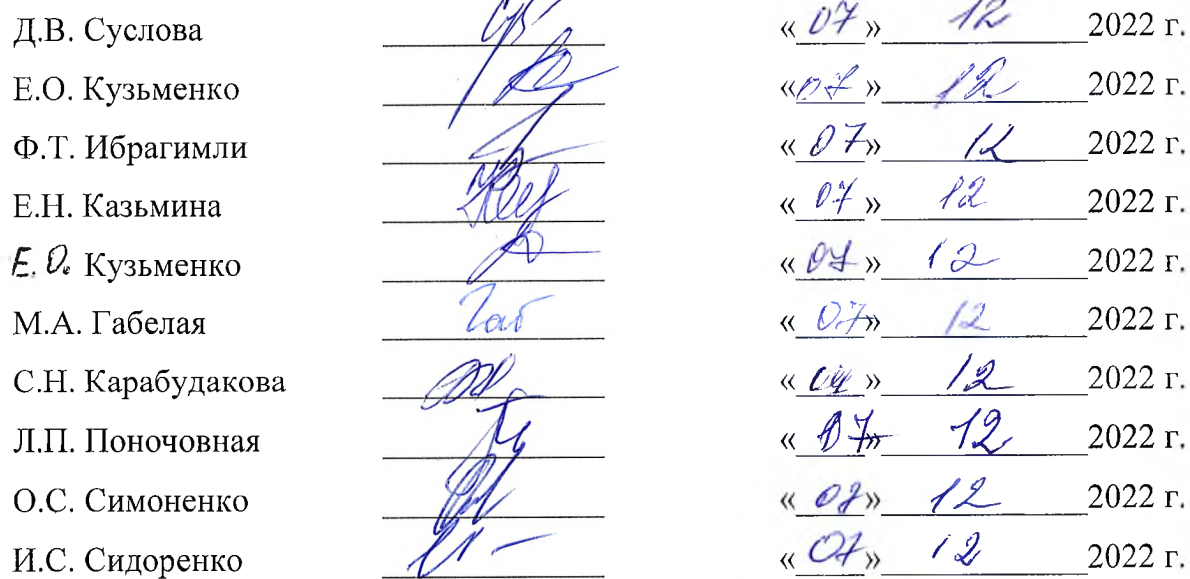 Д.В. Суслова «07» 12 2022 г.
Е.О. Кузьменко «07» 12 2022 г.
Ф.Т. Ибрагимли «07» 12 2022 г.
Е.Н. Казьмина «07» 12 2022 г.
Е.О. Кузьменко «07» 12 2022 г.
М.А. Габелая Габ «07» 12 2022 г.
С.Н. Карабудакова « » 12 2022 г.
Л.П. Поночовная «07» 12 2022 г.
О.С. Симоненко «07» 12 2022 г.
И.С. Сидоренко «07» 12 2022 г.